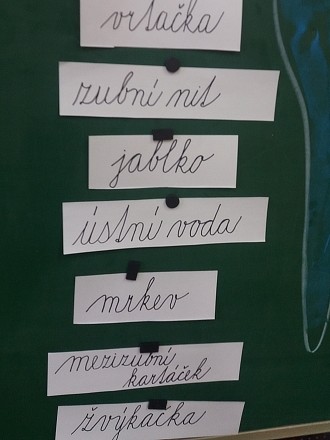 vrtačka
zubní nit
jablko
ústní voda
mrkev
mezizubní
kartáček
žvýkačka